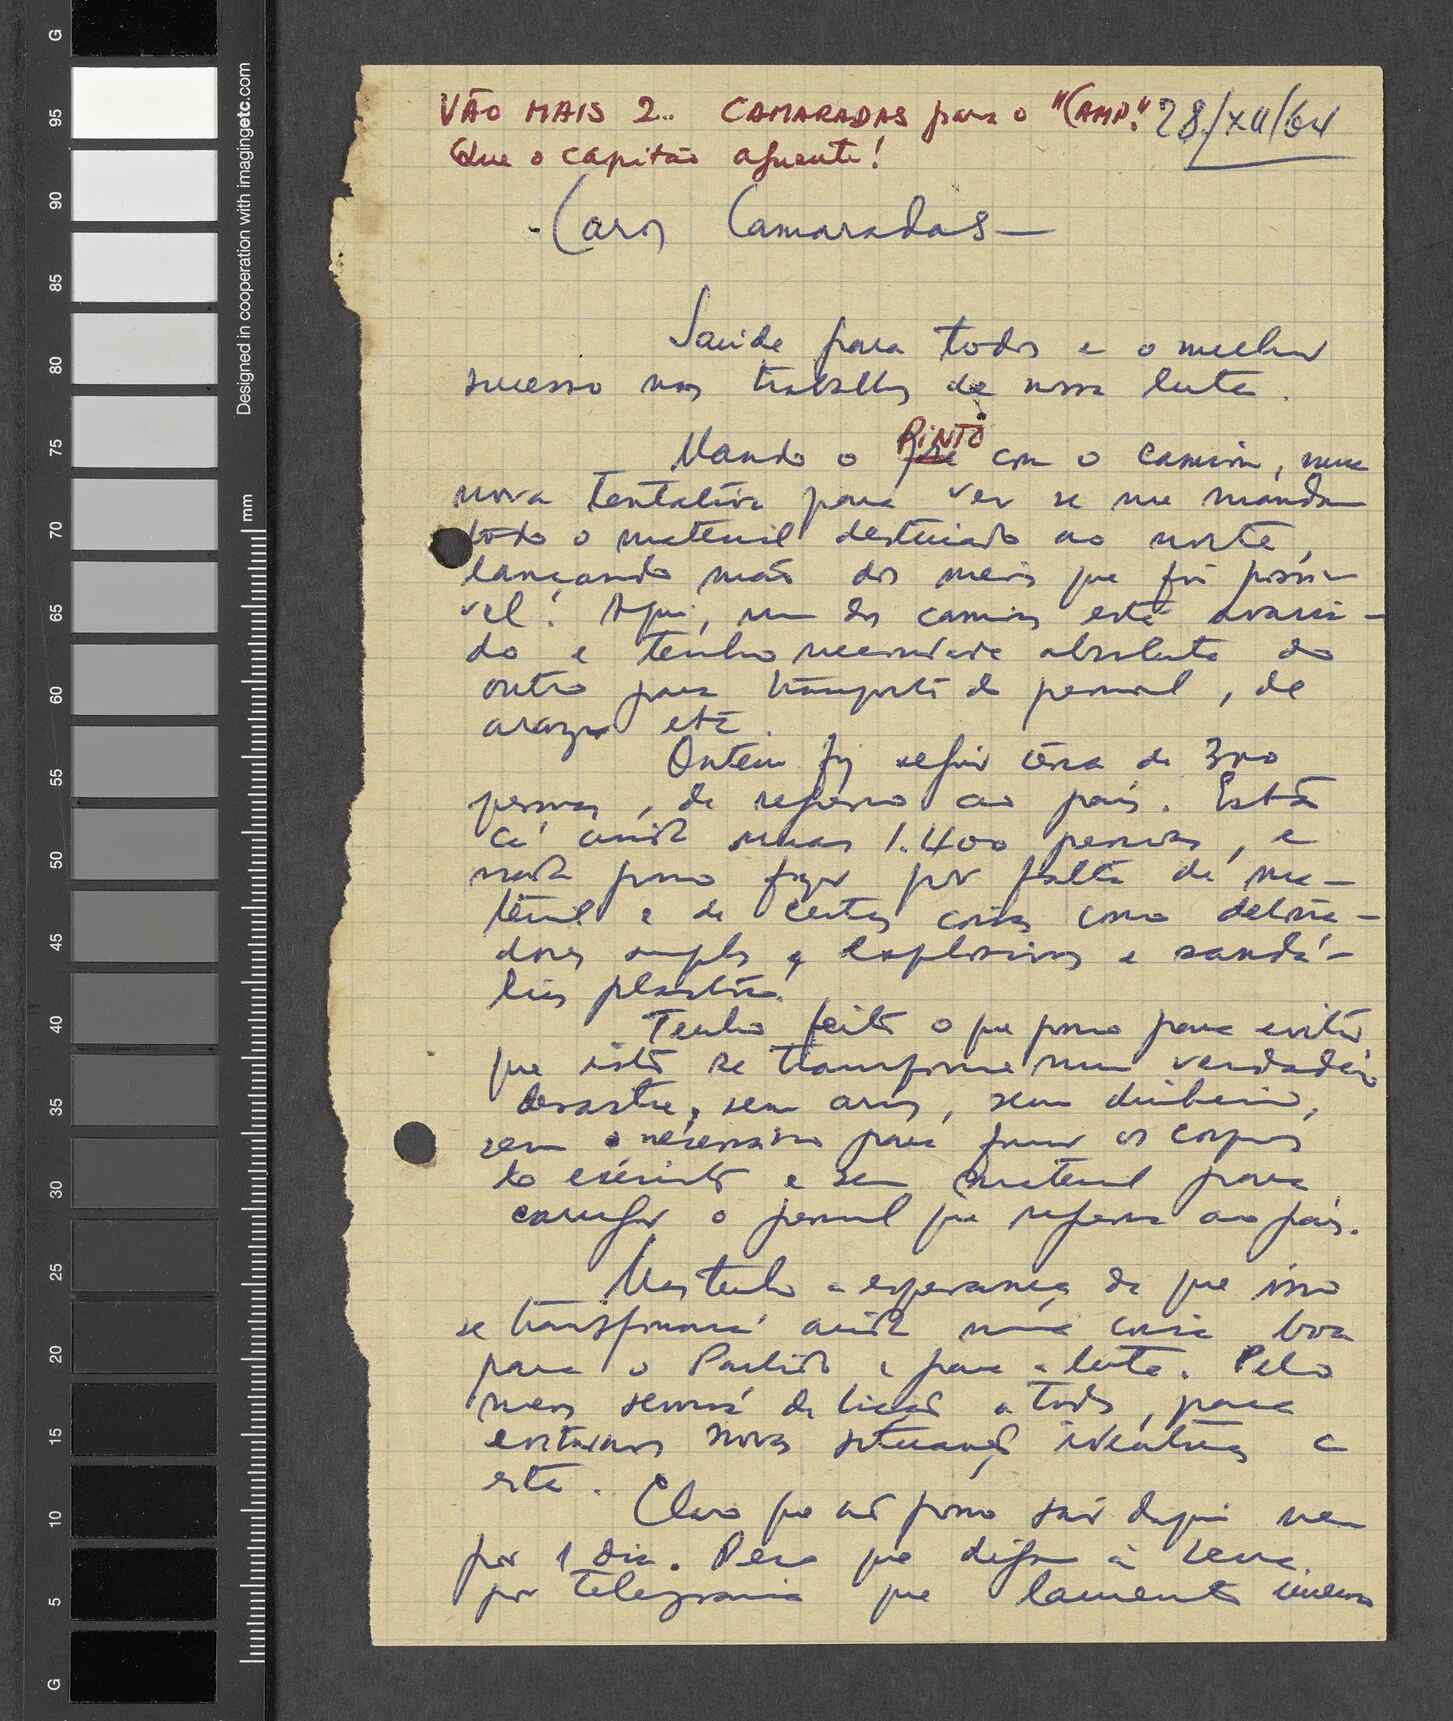 VÃO MAIS 2.. CAMARADAS para o "CAMP." 28/XII/64
Que o capitão aguente!
- Caros Camaradas —
Saúde para todos e o melhor
sucesso nos trabalhos de nossa luta.
PINTO
Mando o com o camion, numa
nova tentativa para ver se me mandam
todo o material destinado ao norte,
lançando mão dos meios que for possí-
vel! Aqui, um dos camions está avaria-
do e tenho necessidade absoluta do
outro para transporte do pessoal, de
arroz etc.
Ontem fiz seguir cerca de 300
pessoas, de regresso ao país. Estão
cá ainda umas 1.400 pessoas, e
nada posso fazer por falta de ma-
terial e de certas coisas como detona-
dores simples e explosivos e sandá-
lias plástico.
Tenho feito o que posso para evitar
que isto se transforme num verdadeiro
desastre, sem arroz, sem dinheiro,
sem o necessário para formar os corpos
do exército e sem material para
carregar o pessoal que regressa ao país.
Mas tenho a esperança de que isso
se transformará ainda numa coisa boa
para o Partido e para a luta. Pelo
menos servirá de lição a todos, para
evitarmos novas situações idênticas a
esta.
Claro que não posso sair daqui nem
por 1 dia. Peço que digam à
por telegrama que lamento imenso
G
95
90
85
80
75
70
65
60
55
50
45
40
35
30
25
20
15
10
5
G
Designed in cooperation with imagingetc.com
mm